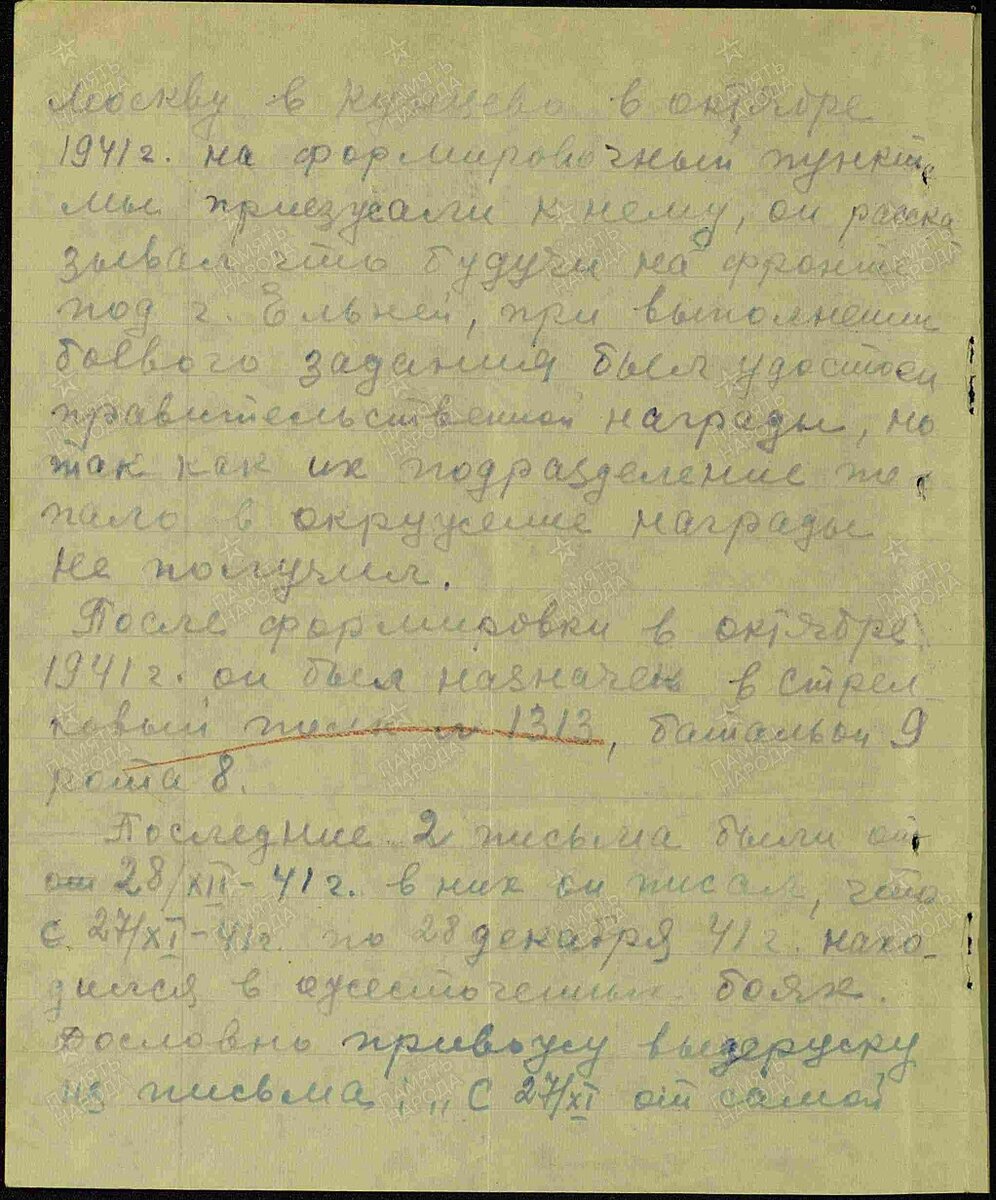 Москву в Кунцево в октябре
1941 г. на формировочный пункт
мы приезжали к нему, он расска
зывал что будучи на фронте
под г. Ельней, при выполнении
боевого задания был удостоен
правительственной награды, но
так как их подразделение по
пало в окружение награды
не получил.
После формировки в октябре
1941 г. он был назначен в стрел
ковый полк № 1313, батальон 9
рота 8.
Последние 2 письма были от
от 28/XII-41 г. в них он писал, что
с 27/XI-41г. по 28 декабря 41 г. нахо-
дился в ожесточенных боях.
Дословно привожу выдержку
из письма: „С 27/XI от самой
ПАМЯТЬ НАРОДА